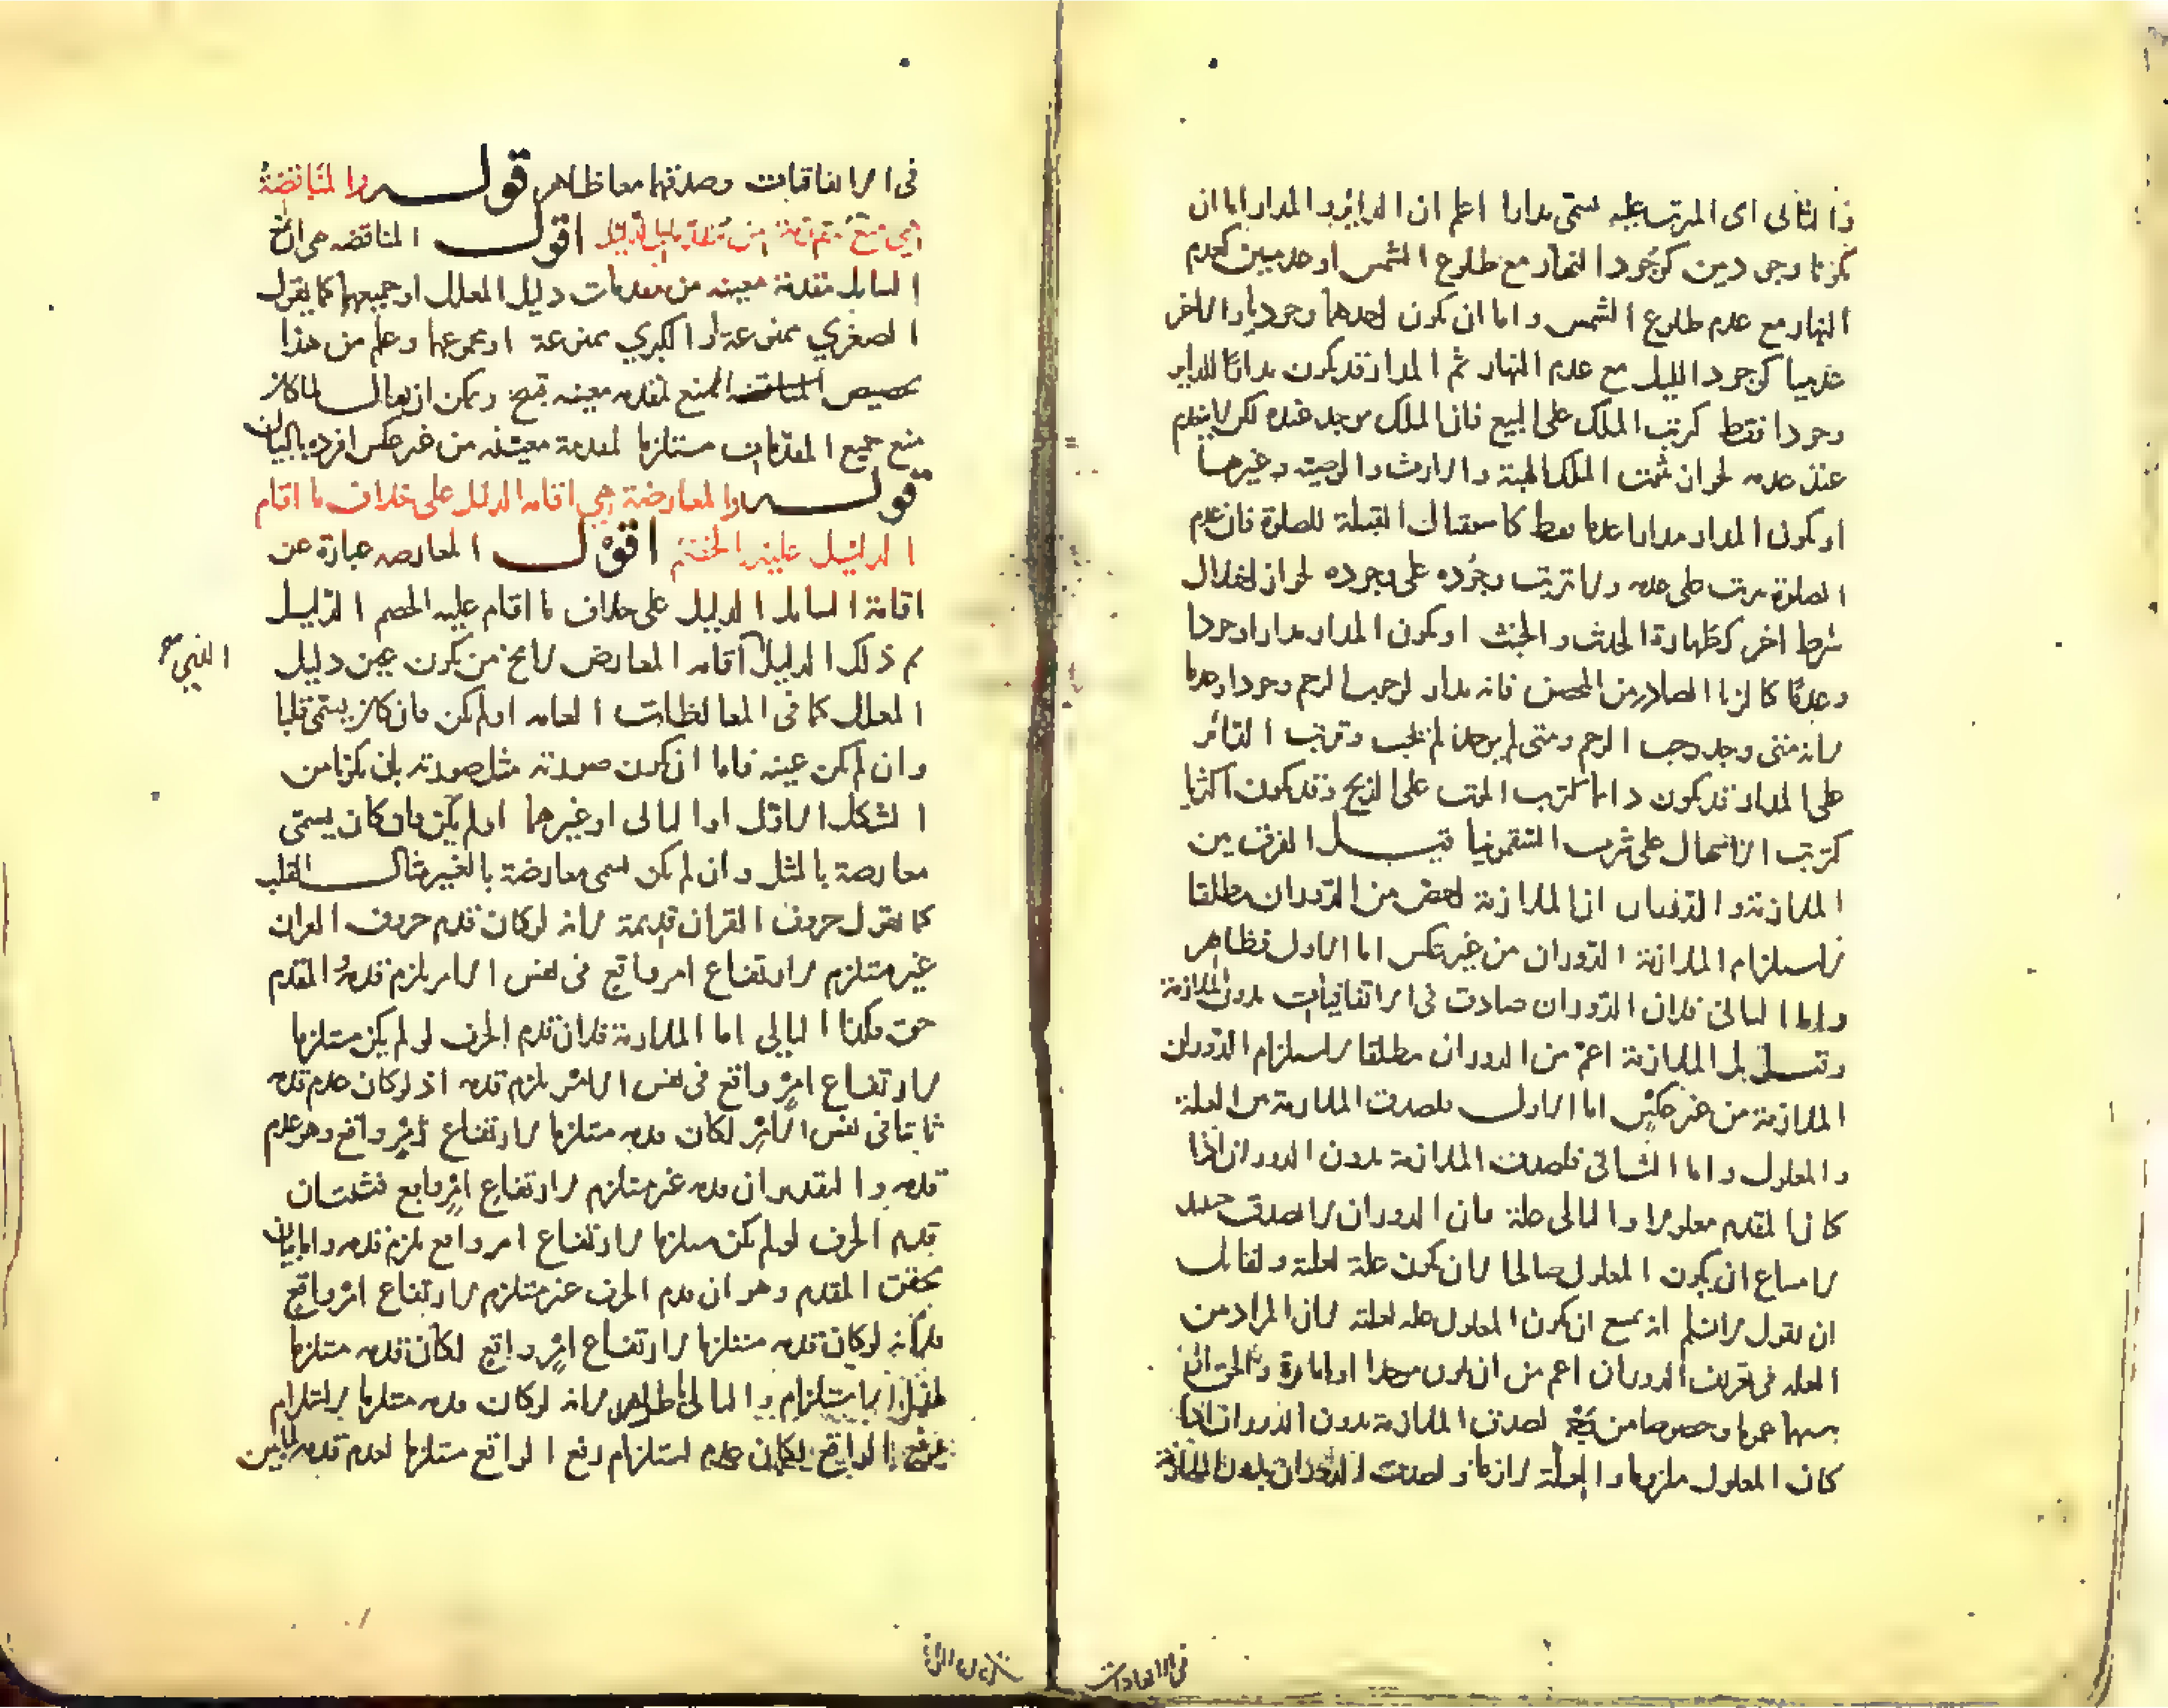 والثانى اى المرتب عليه يسمى مدارا اعلم ان الداير والمدار اما ان
يكونا وجوديين كوجود النهار مع طلوع الشمس او عدميين كعدم
النهار مع عدم طلوع الشمس واما ان يكون احدهما وجوديا والاخر
عدميا كوجود الليل مع عدم النهار ثم المدار قد يكون مدارا للداير
وجودا فقط كترتب الملك على البيع فان الملك يوجد عنده لكن لا ينعدم
عند عدمه لجواز ثبوت الملك بالهبة والارث والوصية وغيرها
او يكون المدار مدارا عدما فقط كاستقبال القبلة للصلوة فان عدم
الصلوة يترتب على عدمه ولا يترتب وجوده على وجوده لجواز اختلال
شرط اخر كطهارة الحدث والخبث او يكون المدار مدارا وجودا
وعدما كالزنا الصادر من المحصن فانه مدار لوجوب الرجم وجودا وعدما
لانه متى وجد وجب الرجم ومتى لم يوجد لم يجب وترتب التاثر
على المدار قد يكون دائما كترتب على الذبح وقد يكون اكثريا
كترتب الاسهال على شرب السقمونيا قيل الفرق بين
الملازمة والدوران ان الملازمة اخص من الدوران مطلقا
لاستلزام الملازمة الدوران من غير عكس اما الاول فظاهر
واما الثانى فلان الدوران صادق فى الاتفاقيات بدون الملازمة
وقيل بل الملازمة اعم من الدوران مطلقا لاستلزام الدوران
الملازمة من غير عكس اما الاول فلصدق الملازمة بين العلة
والمعلول واما الثانى فلصدق الملازمة بدون الدوران اذا
كان المقدم معلولا والتالى علة فان الدوران لا يصدق حينئذ
لامتناع ان يكون المعلول صالحا لان يكون علة لعلته ولقائل
ان يقول لا نسلم انه يمتنع ان يكون المعلول علة لعلته لان المراد من
العلة فى تعريف الدوران اعم من ان يكون موجدا او امارة والحق ان
بينهما عموما وخصوصا من وجه لصدق الملازمة بدون الدوران اذا
كان المعلول ملزوما والعلة لازما ولصدق الدوران بدون الملازمة
فى الاتفاقيات
فى الاتفاقيات وصدقهما معا ظاهر قوله والمناقضة
هى منع مقدمة من مقدمات الدليل اقول المناقضة هى ان يمنع
السايل مقدمة معينة من مقدمات دليل المعلل او جميعها كما يقول
الصغرى ممنوعة او الكبرى ممنوعة او مجموعها وعلم من هذا
تخصيص المنع لمقدمة معينة قبيح ويمكن ان يقال لما كان
منع جميع المقدمات مستلزما لمقدمة معينة من غير عكس افرده بالبيان
قوله والمعارضة هى اقامة الدليل على خلاف ما اقام
الدليل عليه الخصم اقول المعارضة عبارة عن
اقامة السايل الدليل على خلاف ما اقام عليه الخصم الدليل
ثم ذلك الدليل اقامه المعارض لا يخ من يكون عين دليل
المعلل كما فى المغالطات العامة او لم يكن فان كان يسمى قلبا
وان لم يكن عينه فاما ان يكون صورته مثل صورته بان يكونا من
الشكل الاول او الثانى او غيرهما او لم يكن فان كان يسمى
معارضة بالمثل وان لم يكن يسمى معارضة بالغير مثال القلب
كما يقول حروف القران قديمة لانه لو كان قدم حروف القران
غير مستلزم لارتفاع امر واقع فى نفس الامر يلزم قدمه والمقدم
حق فكذا التالى اما الملازمة فلان قدم الحرف لو لم يكن مستلزما
لارتفاع امر واقع فى نفس الامر يلزم قدمه اذ لو كان عدم قدمه
ثابتا فى نفس الامر لكان قدمه مستلزما لارتفاع امر واقع وهو عدم
قدمه والتقدير ان قدمه غير مستلزم لارتفاع امر واقع فثبت ان
قدم الحرف لو لم يكن مستلزما لارتفاع امر واقع يلزم قدمه واما بيان
تحقق المقدم وهو ان قدم الحرف غير مستلزم لارتفاع امر واقع
فلانه لو كان قدمه مستلزما لارتفاع امر واقع لكان قدمه مستلزما
والتالى لانه لو كان قدمه مستلزما لاستلزام
رفع الواقع لكان عدم استلزام رفع الواقع مستلزما لعدم قدمه